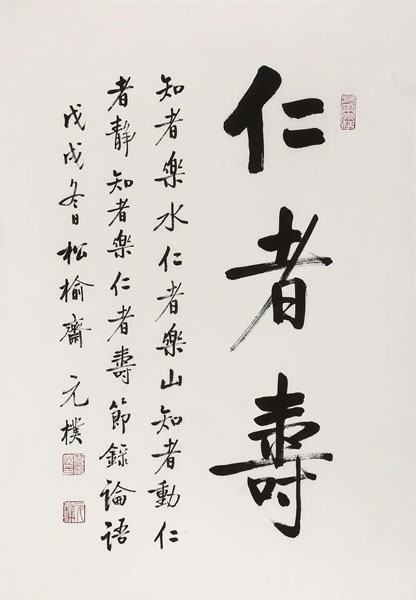 仁者壽
知者樂水仁者樂山知者動仁
者靜知者樂仁者壽節錄論語
戊戌冬日松榆齋元樸